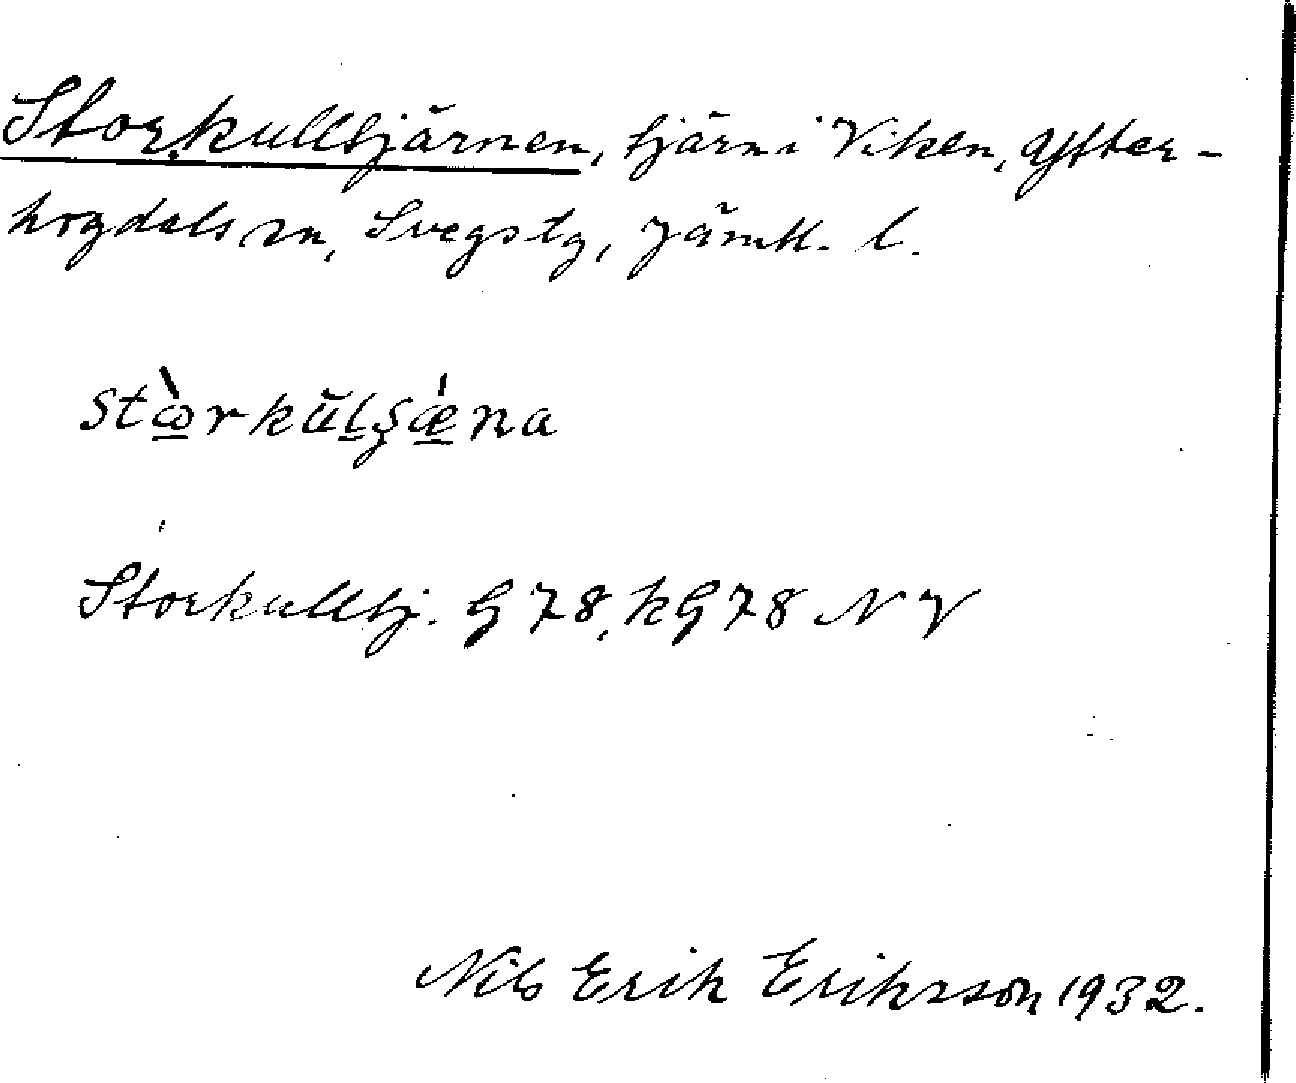 Storkulltjärnen, tjärn i Viken, Ytter-
hogdals sn, Svegs tg, Jämtl. l.
stὼ̲rkŭl̲ʂǽ̲na
Storkulltj. G 78, kG 78 NV
Nils Erik Eriksson 1932.